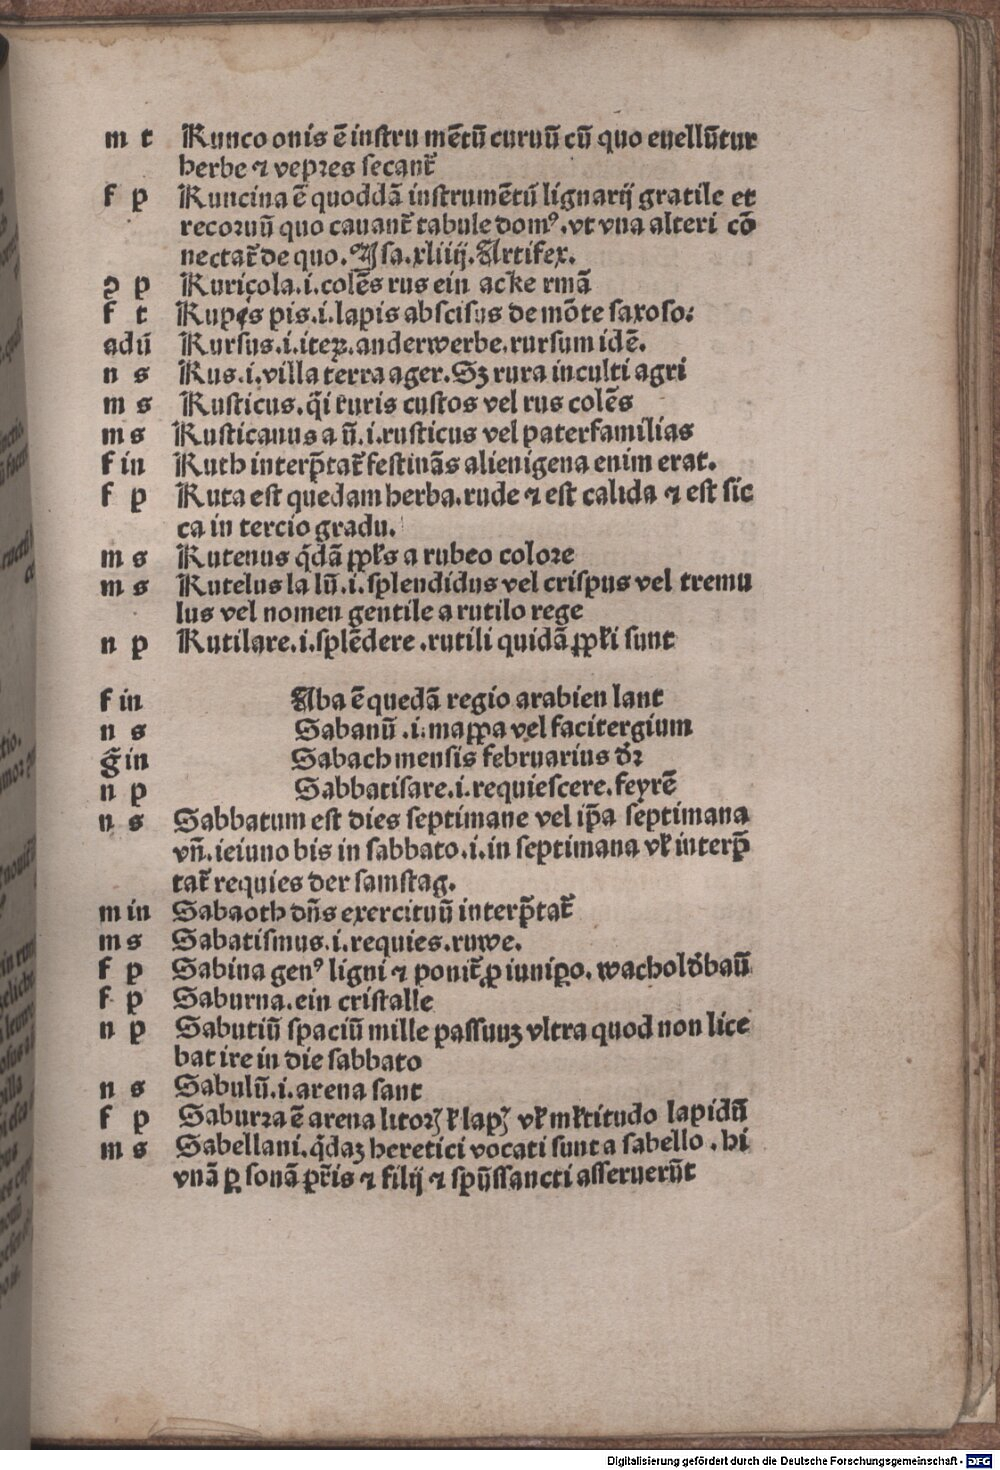 m t Runco onis ē instru mētū curuū cū quo euellūtur
herbe ⁊ vepres secant᷑
f p Runcina ē quoddā instrumētū lignarij gratile et
recoruū quo cauant᷑ tabule domꝰ .vt vna alteri cō
nectat᷑ de quo. Isa.xliiij. Artifex.
ꝯ p Ruricola.i.colēs rus ein acke rmā
f t Rupes pis.i.lapis abscisus de mōte saxoso:
adū Rursus.i.iteꝝ.anderwerbe.rursum idē.
n s Rus.i.villa terra ager.Sꝫ rura inculti agri
m s Rusticus.q̄i ruris custos vel rus colēs
m s Rusticanus a ū.i.rusticus vel paterfamilias
f in Ruth interp̄tat᷑ festinās alienigena enim erat.
f p Ruta est quedam herba.rude ⁊ est calida ⁊ est sic
ca in tercio gradu.
m s Rutenus q̄dā ꝓpl̓s a rubeo colore
m s Rutelus la lū.i.splendidus vel crispus vel tremu
lus vel nomen gentile a rutilo rege
n p Rutilare.i.splēdere .rutili quidā ꝓpl̓i sunt
f in Aba ē quedā regio arabien lant
n s Sabanū .i. mappa vel facitergium
g̃ in Sabach mensis februarius dr̄
n p Sabbatisare.i.requiescere.feyrē
n s Sabbatum est dies septimane vel ip̄a septimana
vn̄.ieiuno bis in sabbato.i.in septimana vl̓ interp̄
tat᷑ requies der samstag.
m in Sabaoth dn̄s exercituū interp̄tat᷑
m s Sabatismus.i.requies.ruwe.
f p Sabina genꝰ ligni ⁊ ponit᷑ ꝓ iunipo. wacholdˀbaū
f p Saburna.ein cristalle
n p Sabutiū spaciū mille passuuꝫ vltra quod non lice
bat ire in die sabbato
n s Sabulū.i.arena sant
f p Saburra ē arena litoꝝ l̓ lapꝫ vl̓ ml̓titudo lapidū
m s Sabellani.q̄daꝫ heretici vocati sunt a sabello . hi
vnā ꝑ sonā pr̄is ⁊ filij ⁊ spūssancti asseruerūt
Digitalisierung gefördert durch die Deutsche Forschungsgemeinschaft - DFG